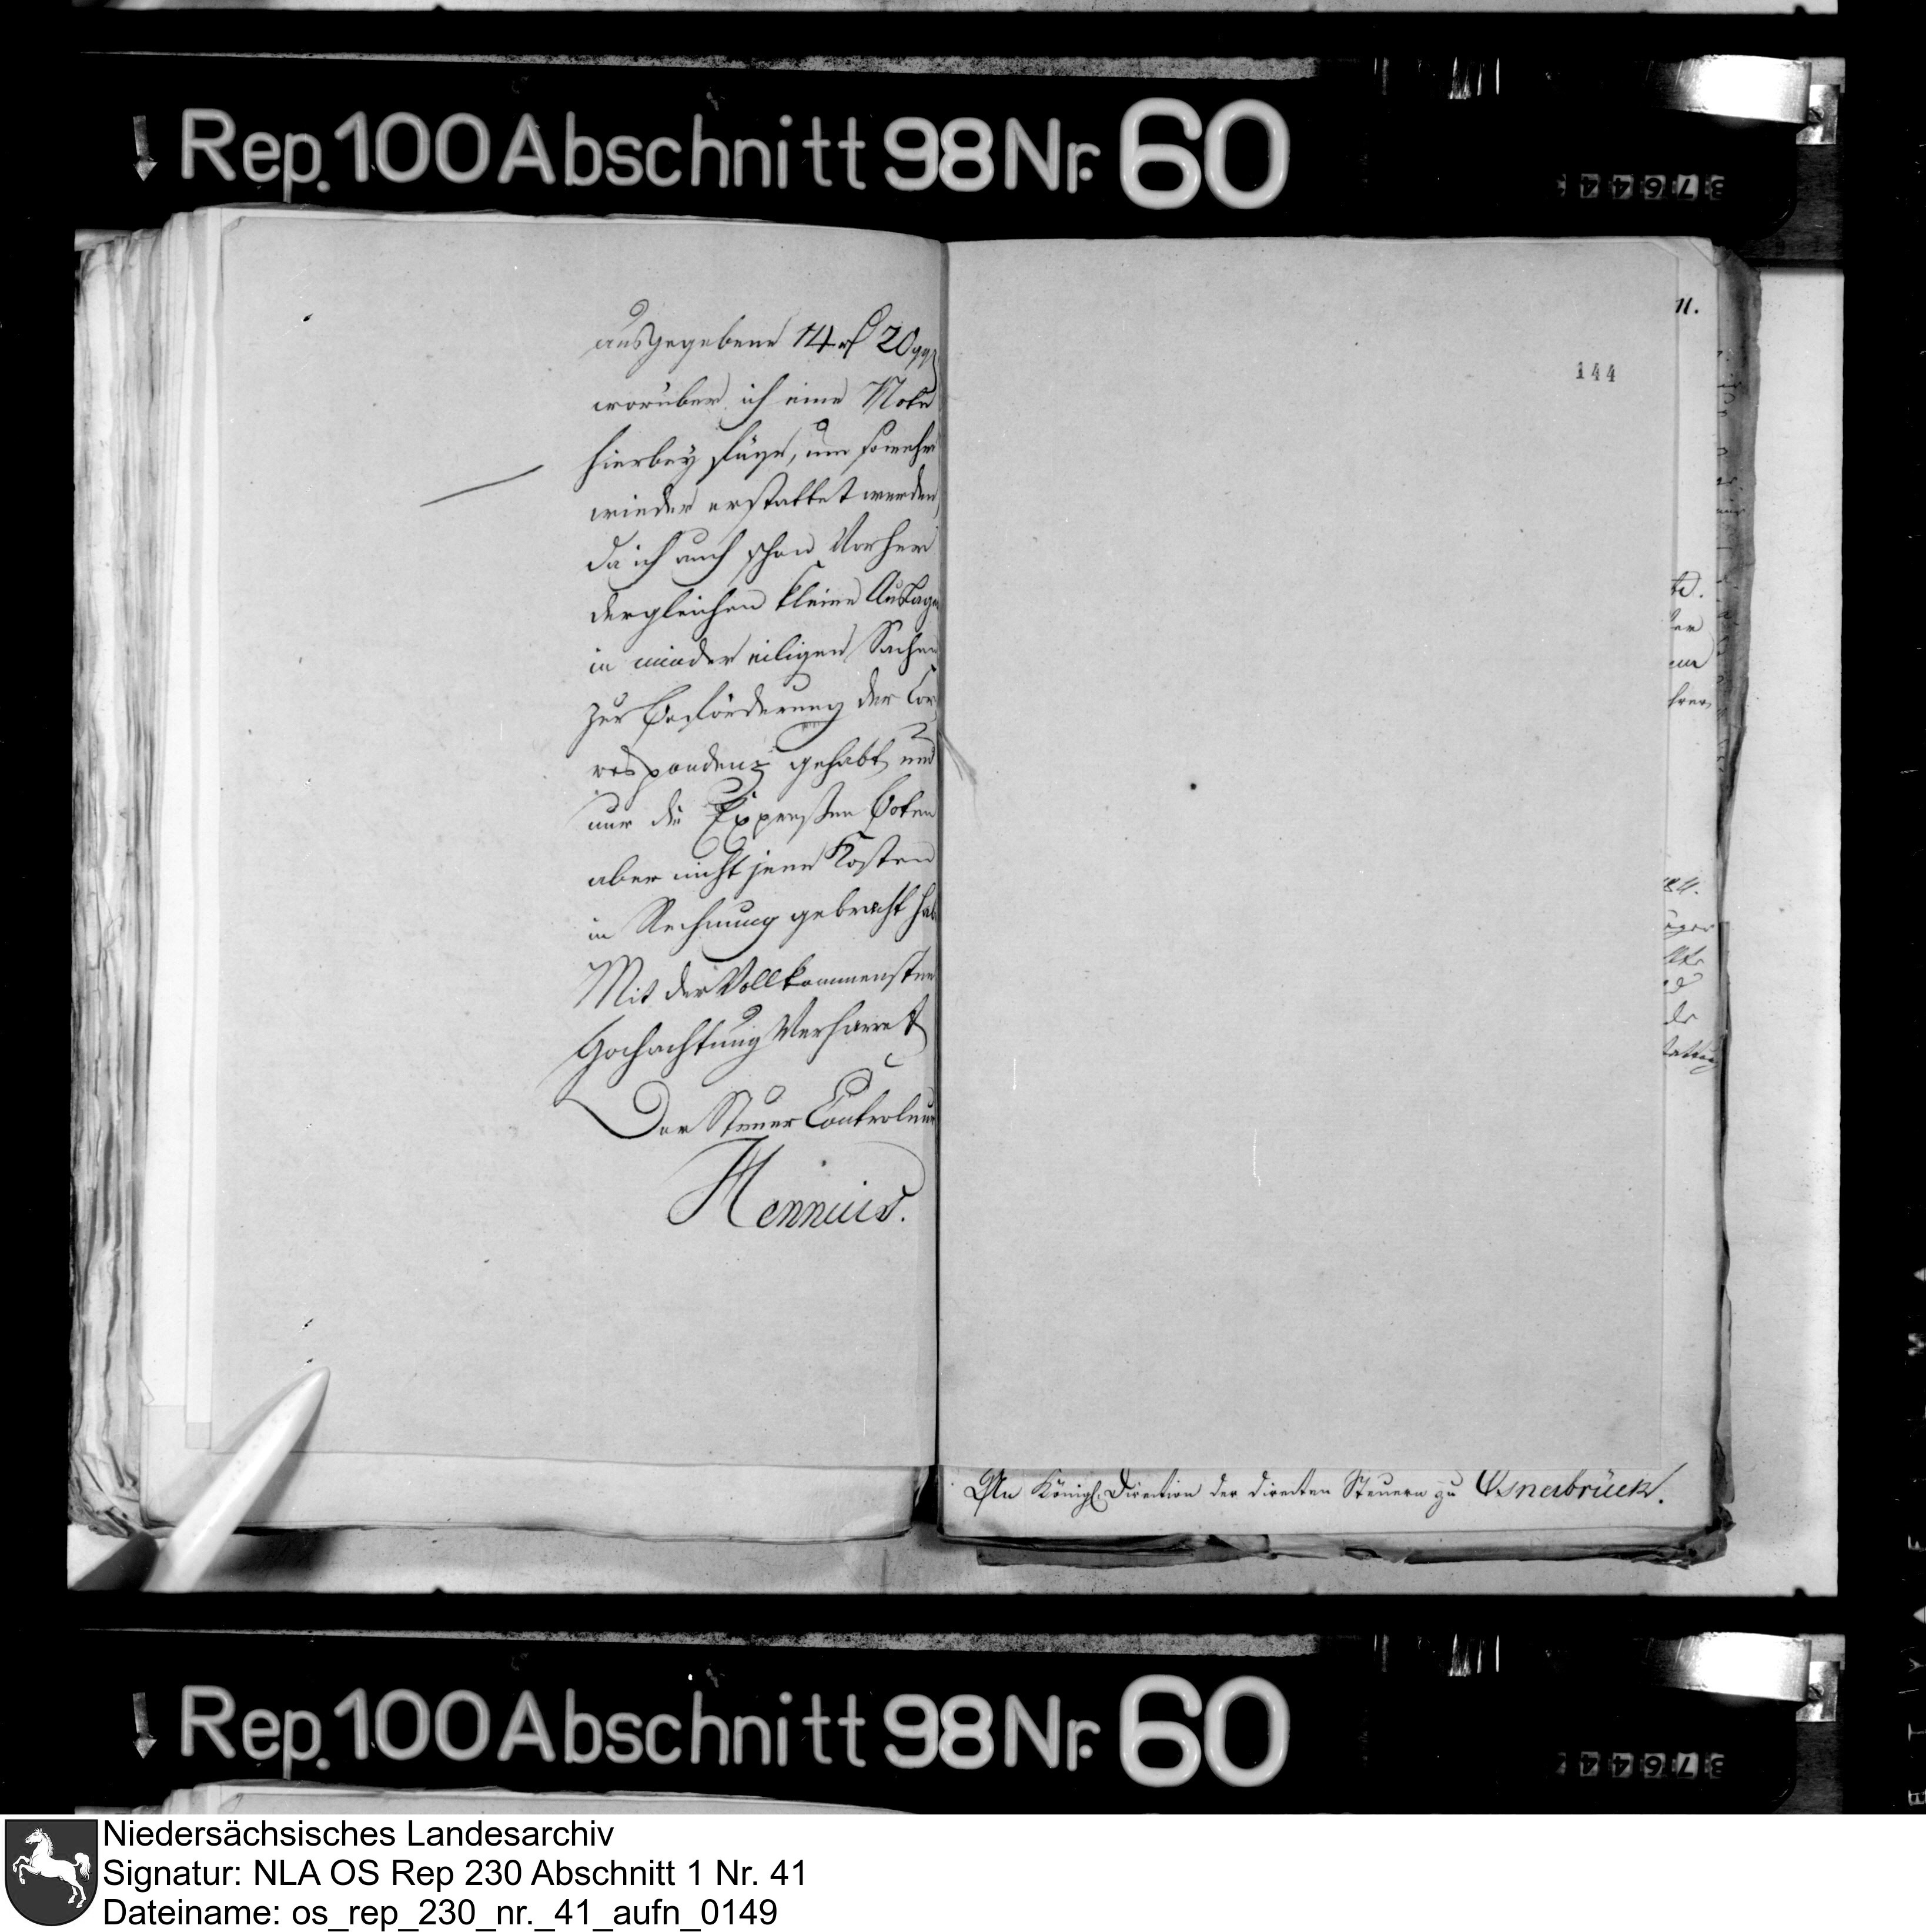 Rep. 100 Abschnitt 98 Nr. 60
37644
ausgegebene 14 rf 20 ggr
worüber ich eine Note
hierbey füge, um somehr
wieder erstattet werden,
da ich auch schon Vorher
dergleichen kleine Auslagen
in minder eiligen Sachen
zur Beförderung der Cor¬
respondenz gehabt, und
nur die Expreßen Boten
aber nicht jene Kosten
in Rechnung gebracht habe
Mit der Vollkommensten
Hochachtung Verharret
Der Steuer Controleur
Hennius.
11.
144
An Königl. Direction der directen Steuern zu Osnabrück.
Rep. 100 Abschnitt 98 Nr. 60
37644
Niedersächsisches Landesarchiv
Signatur: NLA OS Rep 230 Abschnitt 1 Nr. 41
Dateiname: os_rep_230_nr._41_aufn_0149